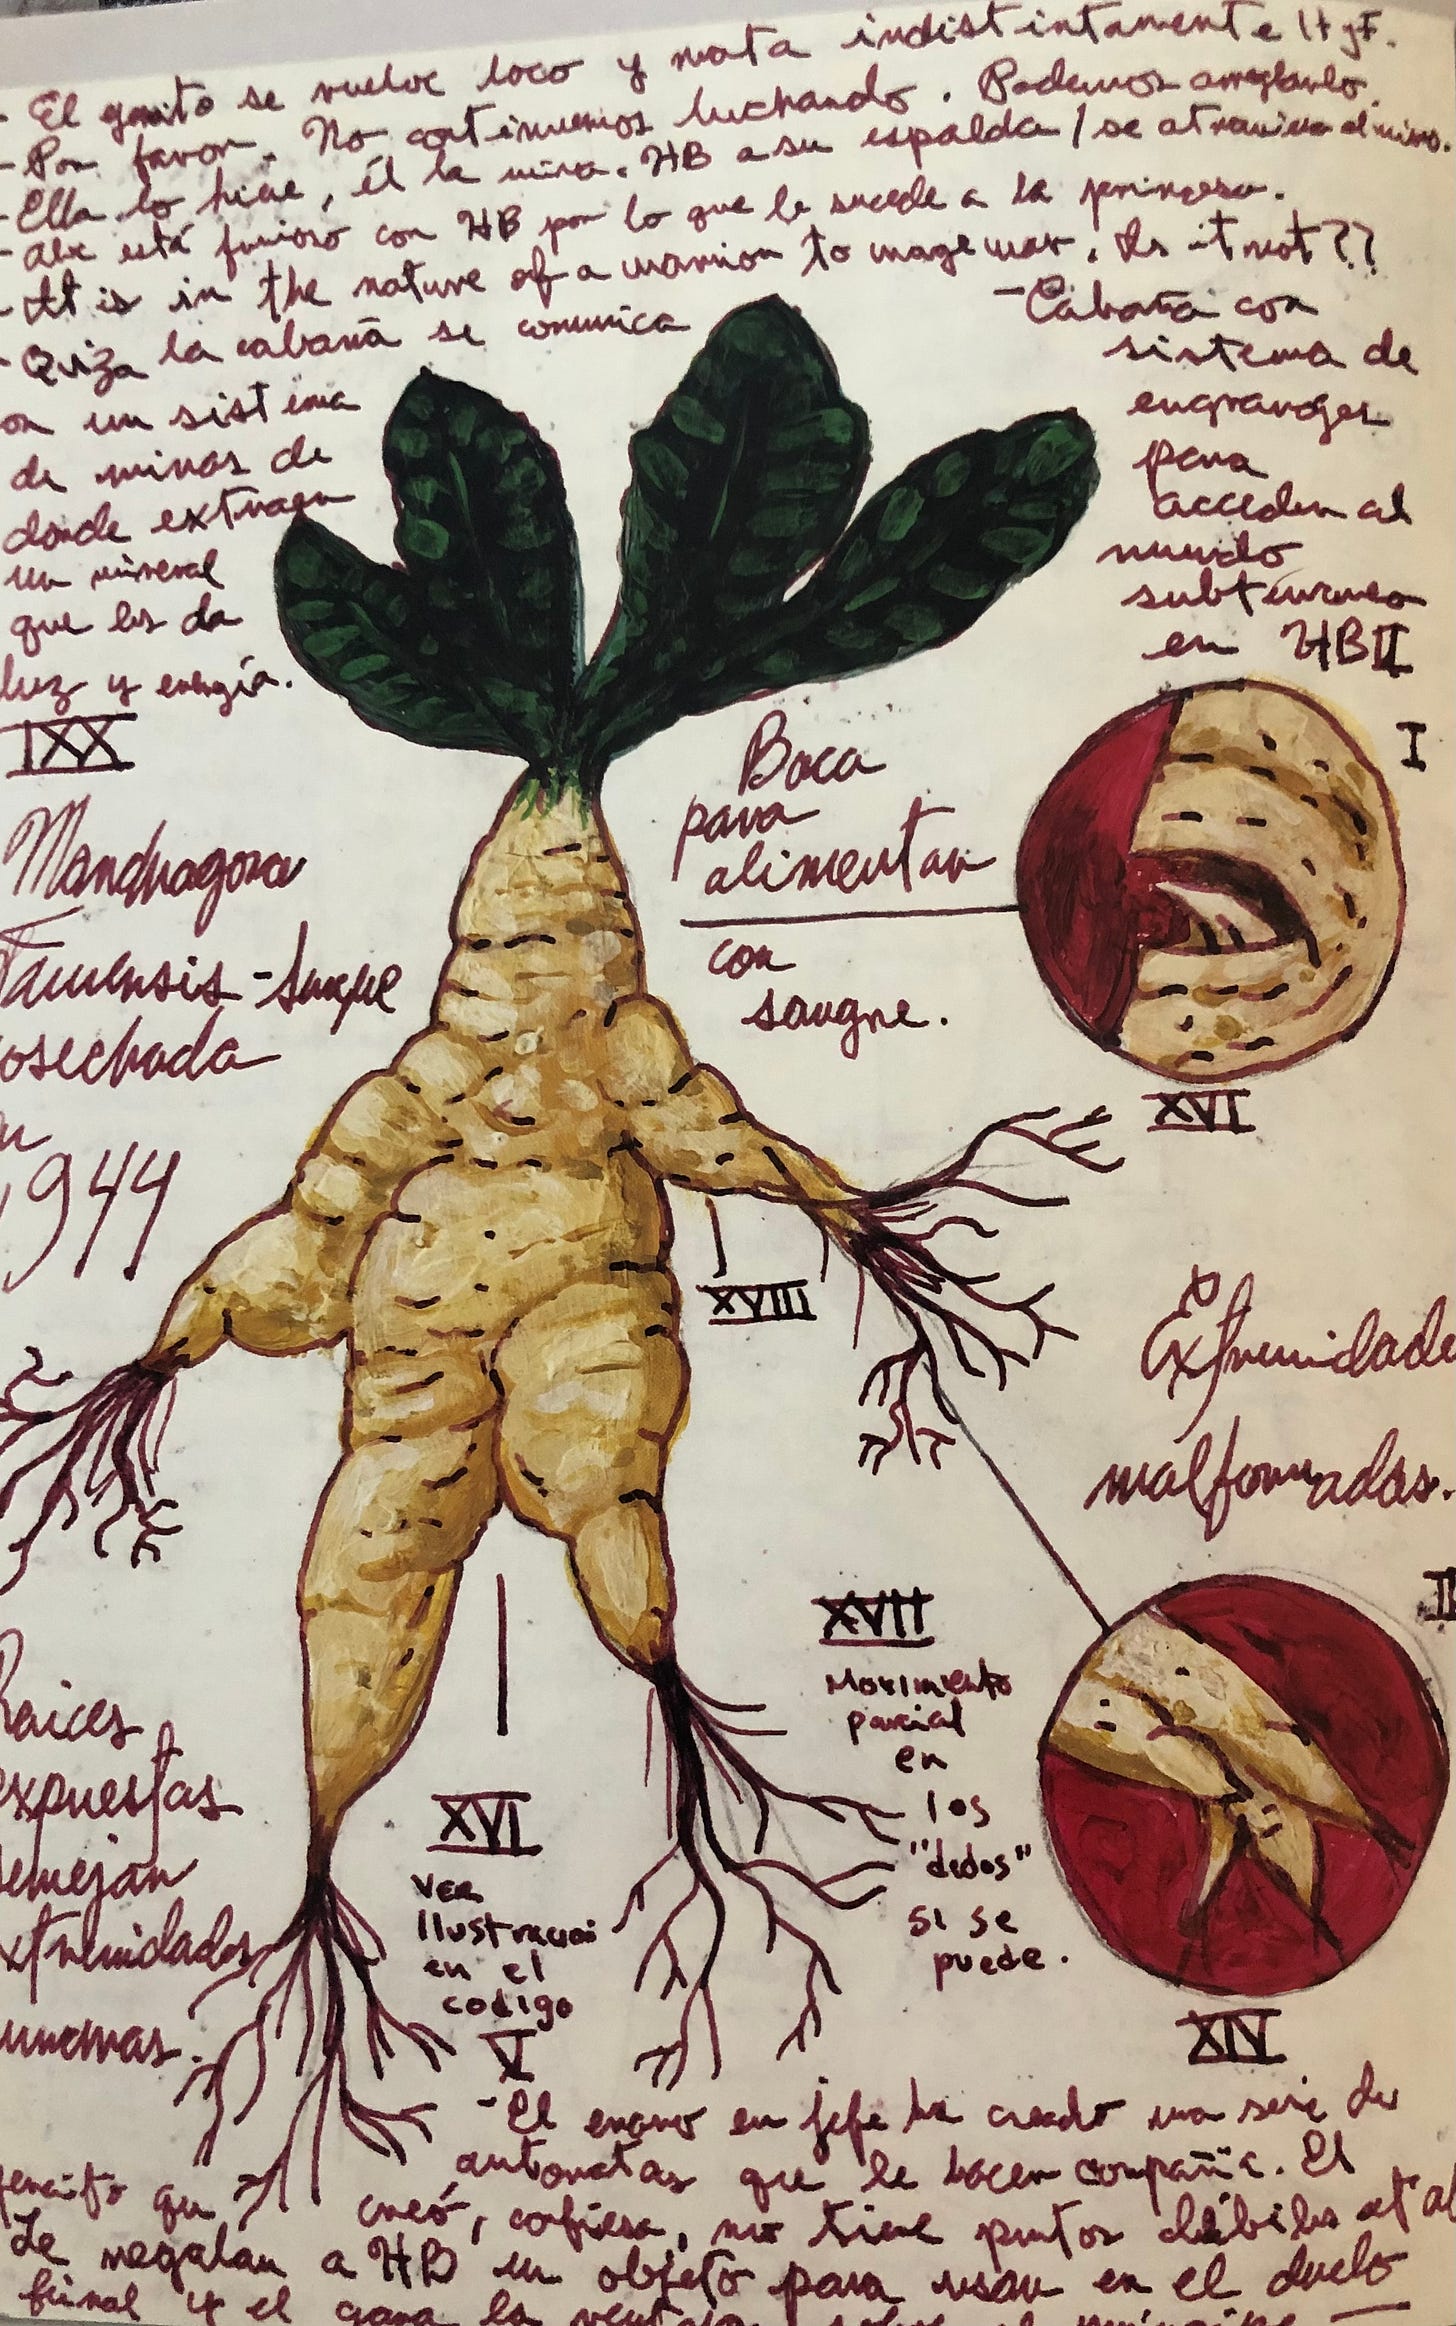 - El gentto se vuelve loco y mata indistintamente H y F.
- Por favor. No continuemos luchando. Podemos arreglarlo.
- Ella lo hiere, él la mira. HB a su espalda / se atraviesa al mismo.
- Abe está furioso con HB por lo que le sucede a la princesa.
- It is in the nature of a warrior to wage war. Is it not??
- Quiza la cabaña se comunica
on un sistema
de minas de
donde extraen
un mineral
que les da
luz y energía.
- Cabaña con
sistema de
engranges
para
acceder al
mundo
subterraneo
en HBII
IXX
Mandragora
osechada
1944
Boca
para
alimentar
con
sangre.
I
XVI
XVIII
Extremidade
malformadas.
II
XVII
Movimiento
parcial
en
los
"dedos"
si se
puede.
XIV
Raices
expuestas
semejan
xtremidades
umanas.
XVI
Ver
Ilustracion
en el
codigo
V
- El enano en jefe ha creado una serie de
automatas que le hacen compañia. El
jercito que creó, confiesa, no tiene puntos débiles
Le regalan a HB un objeto para usar en el duelo
final y el gana la